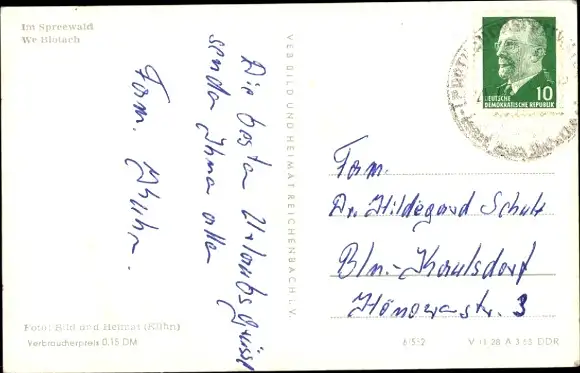 Im Spreewald
We Blotach
Die besten Urlaubsgrüsse
senden Ihnen allen
Fam.
VEB BILD UND HEIMAT REICHENBACH i. V.
10
DEUTSCHE
DEMOKRATISCHE REPUBLIK
Fam.
Dr. Hildegard Schulz
Bln.-Kaulsdorf
Hönowerstr. 3
Foto: Bild und Heimat (Kühn)
Verbraucherpreis 0,15 DM
6/512
V 11 28 A 3 63 DDR